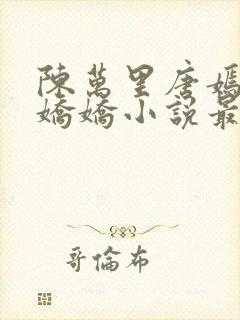 陳萬里唐嫣
嬌嬌小說最
哥倫布